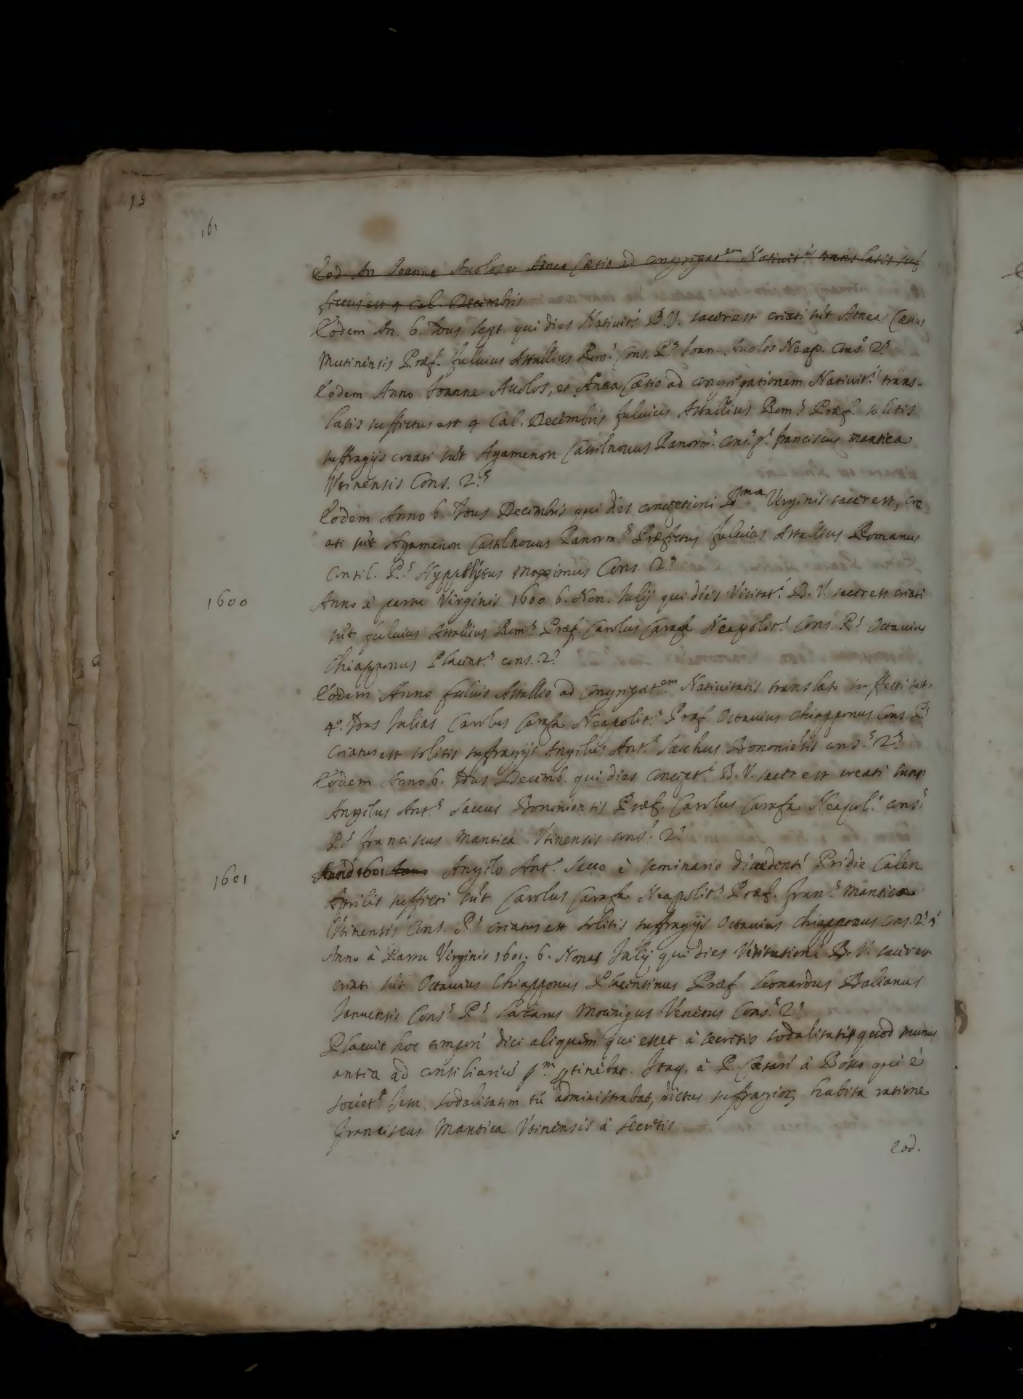 15
161
Eod. An. Joanne Aualos et Aenea Caesio ad congregat.em Natiuit.s translatis suf
fectus est 4 Cal. Decembris
Eodem An. 6. Idus Sept. qui dies Natiuit.s B. V. sacer est creati sūt Aenea Caesius
Mutinensis Praef. fuluius Attallius Ro.s Cons. P.s Joan. Aualos Neap. Cons. 2.s
Eodem Anno Joanne Aualos, et Aenea Caesio ad congregationem Natiuit.s trans-
latis suffectus est 4 Cal. Decembris fuluius Attallius Rom.s Praef. solitis
suffragijs creati sūt Agamenon Castilnouus Panorm.s Cons. p.s franciscus mantica
Vtinensis Cons. 2.s
Eodem Anno 6. Idus Decembris qui dies conceptioni B.mae Virginis sacer est, cre
ati sūt Agamenon Castilnouus Panorm.s Praefectus fuluius Attallius Romanus
Consil. P.s Hyppolitus Maximus Cons. 2.s
1600
Anno à partu Virginis 1600 6. Non. Julij qui dies Visitat.s B. V. sacer est creati
sūt fuluius Attallius Rom.s Praef. Carolus Carafa Neapolit.s Cons. P.s Octauius
Chiapponus Placent.s cons. 2.s
Eodem Anno fuluio Attallio ad congregat.em Natiuitatis translato suffecti sūt
4.o Idus Julias Carolus Carafa Neapolit.s Praef. Octauius Chiapponus Cons. P.s
Creatus est solitis suffragijs Angelus Ant.s Sacchus Bononiensis cons. 2.s
Eodem Anno 6. Idus Decemb. qui dies concept.s B. V. sacer est creati sunt
Angelus Ant.s Saccus Bononiensis Praef. Carolus Carafa Neapol.s cons.
P.s franciscus Mantica Vtinensis cons. 2.s
1601
Anno 1601 Anno Angelo Ant.o Sacco è seminario discedenti Pridie Calen
Aprilis suffecti sūt Carolus Carafa Neapolit.s Praef. fran.s Mantica
Vtinensis Cons. P.s creatus est solitis suffragijs Octauius Chiapponus cons. 2.s
Anno à Partu Virginis 1601. 6. Nonas Julij qui dies Visitationi B. V. sacer est
creati sūt Octauius Chiapponus Placentinus Praef. Leonardus Balianus
Januensis Cons. P.s Lazarus Mocenigus Venetus Cons. 2.s
Placuit hoc tempore dici aliquem qui esset à secretis sodalitatis quod munus
antea ad consiliariū p.m ptinebat. Itaq. à P. Caesare à Bosco qui è
Societ.e Jesu sodalitatem tū administrabat, dictus suffragior. habita ratione
franciscus Mantica Vtinensis à secretis
Eod.